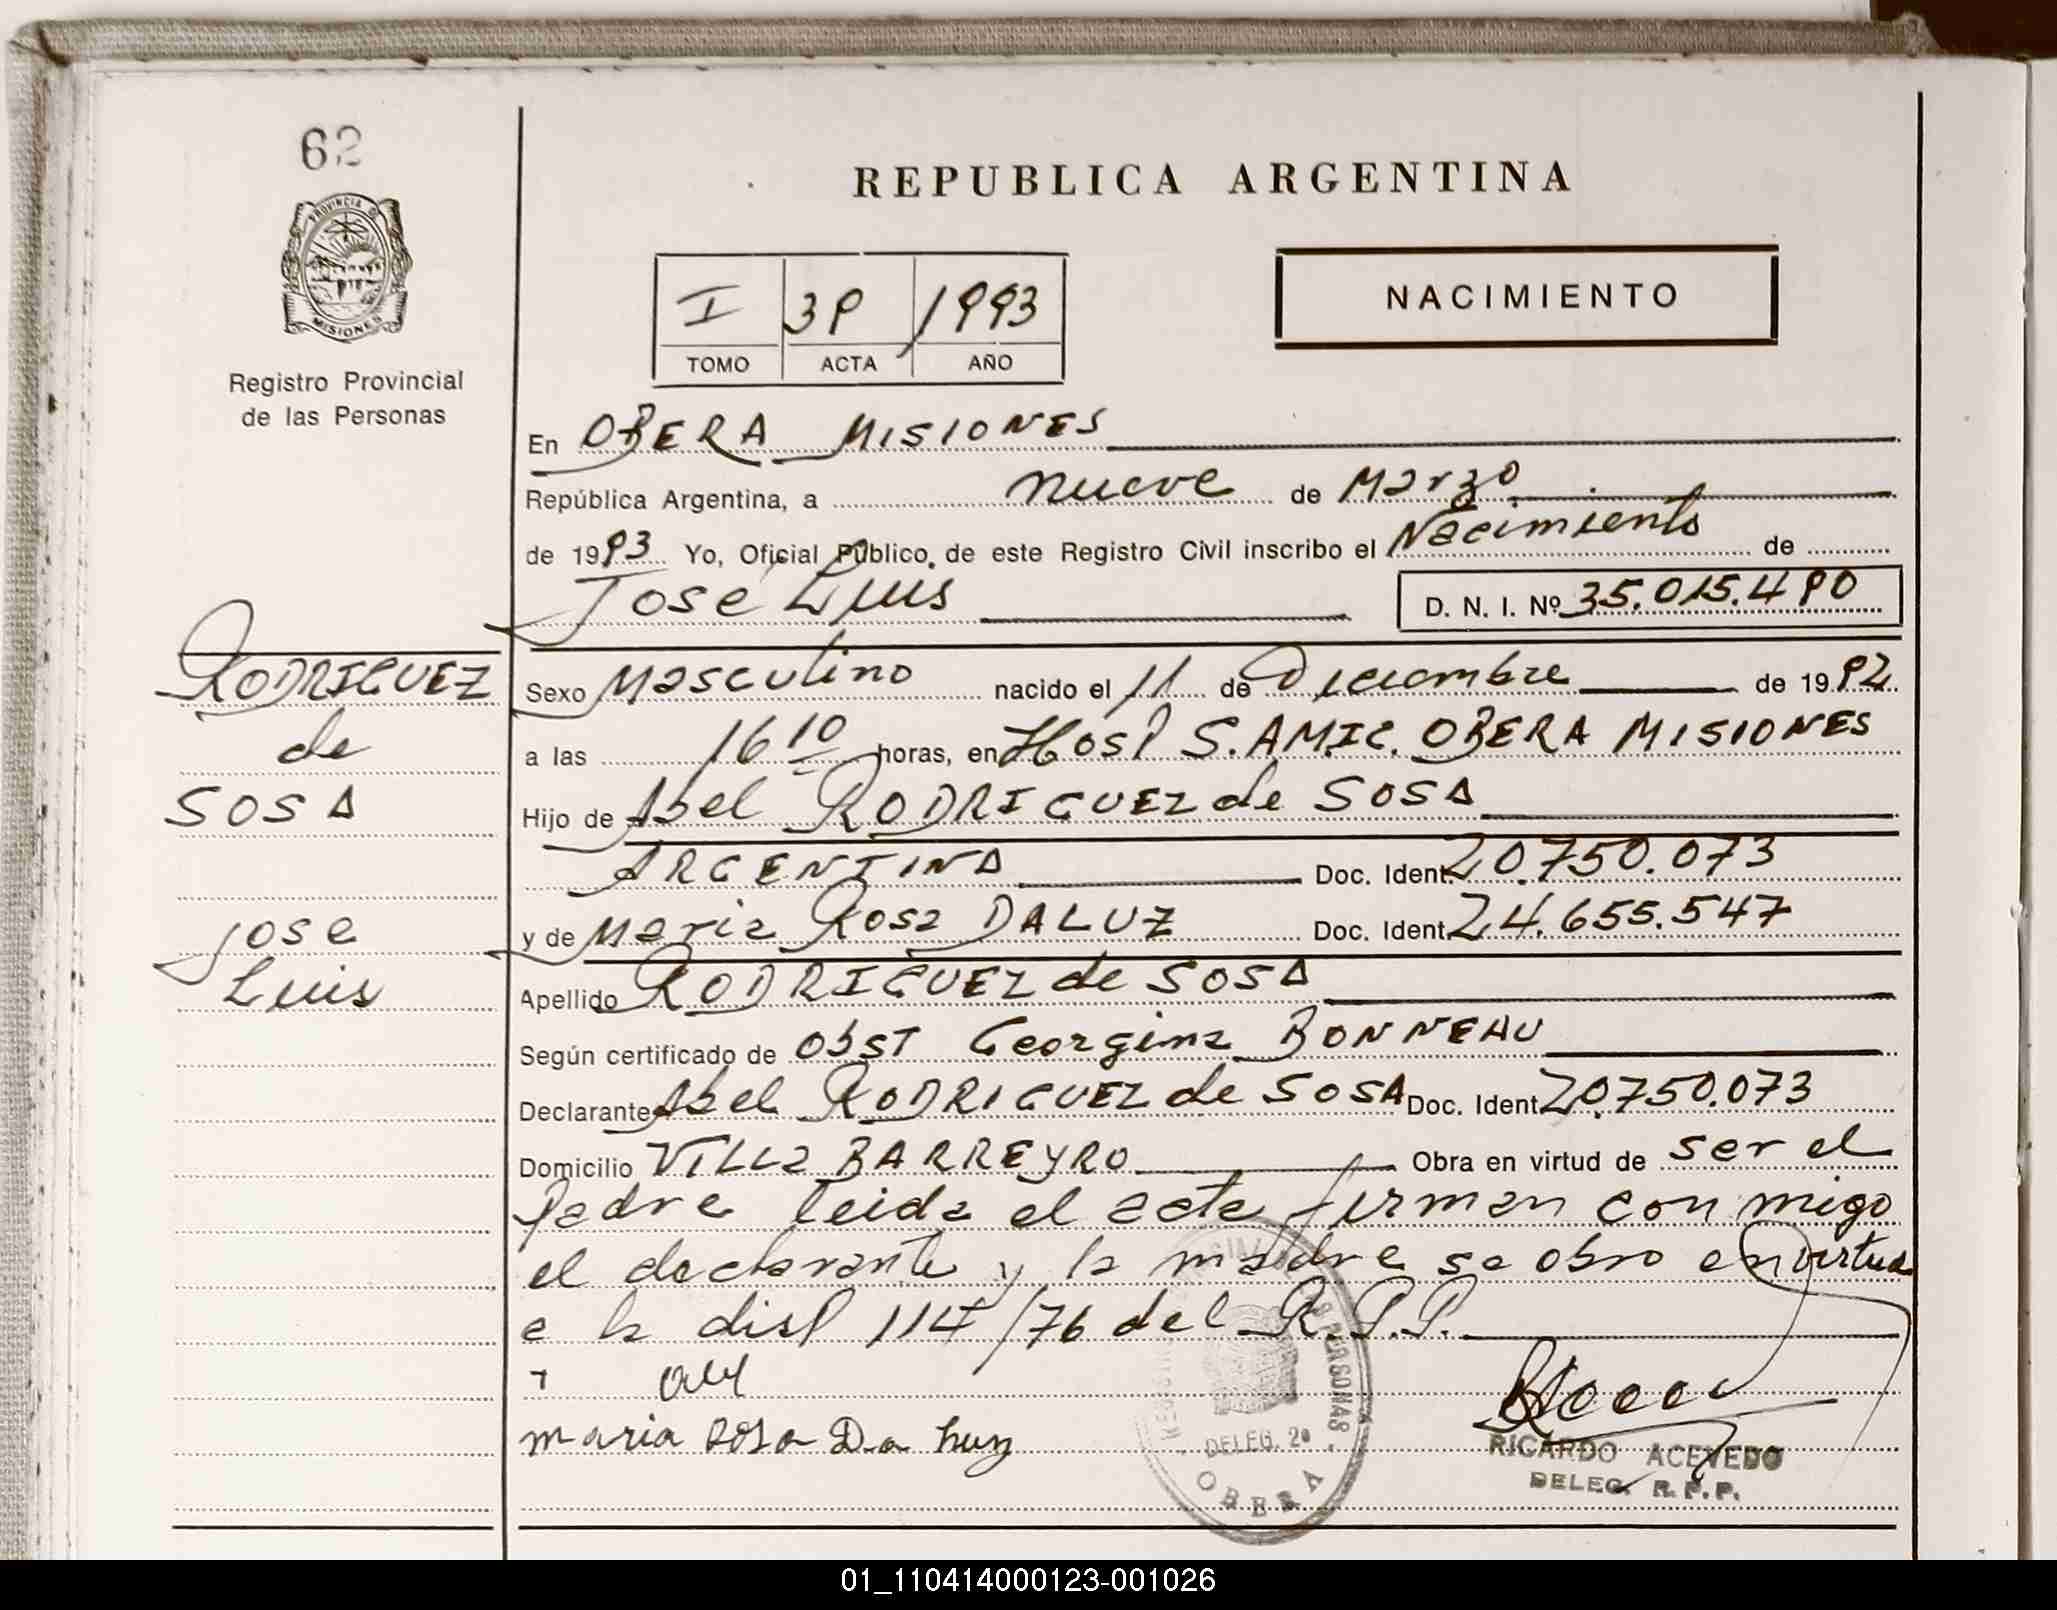 62
PROVINCIA D
MISIONES
Registro Provincial
de las Personas
REPUBLICA ARGENTINA
I 39 1993
TOMO ACTA AÑO
NACIMIENTO
En OBERA MISIONES
República Argentina, a nueve de Marzo
de 1993 Yo, Oficial Público, de este Registro Civil inscribo el Nacimiento de
Jose Luis
D. N. I. Nº 35.015.490
RODRIGUEZ
de
SOSA
Jose
Luis
Sexo Masculino nacido el 11 de Diciembre de 1992
a las 16 10 horas, en Hosp S.AMIC. OBERA MISIONES
Hijo de Abel RODRIGUEZ de SOSA
ARGENTINA Doc. Ident. 20.750.073
y de Maria Rosa DALUZ Doc. Ident. 24.655.547
Apellido RODRIGUEZ de SOSA
Según certificado de Obst Georgina BONNEAU
Declarante Abel RODRIGUEZ de SOSA Doc. Ident. 20.750.073
Domicilio VILLA BARREYRO Obra en virtud de ser el
Padre leida el acta firman conmigo
el declarante y la madre se obro en virtud
a la disp 114/76 del R.P.P.
maria Rosa Da luz
PERSONAS
DELEG. 2ª
OBERA
RICARDO ACEVEDO
DELEG. R.P.P.
01_110414000123-001026